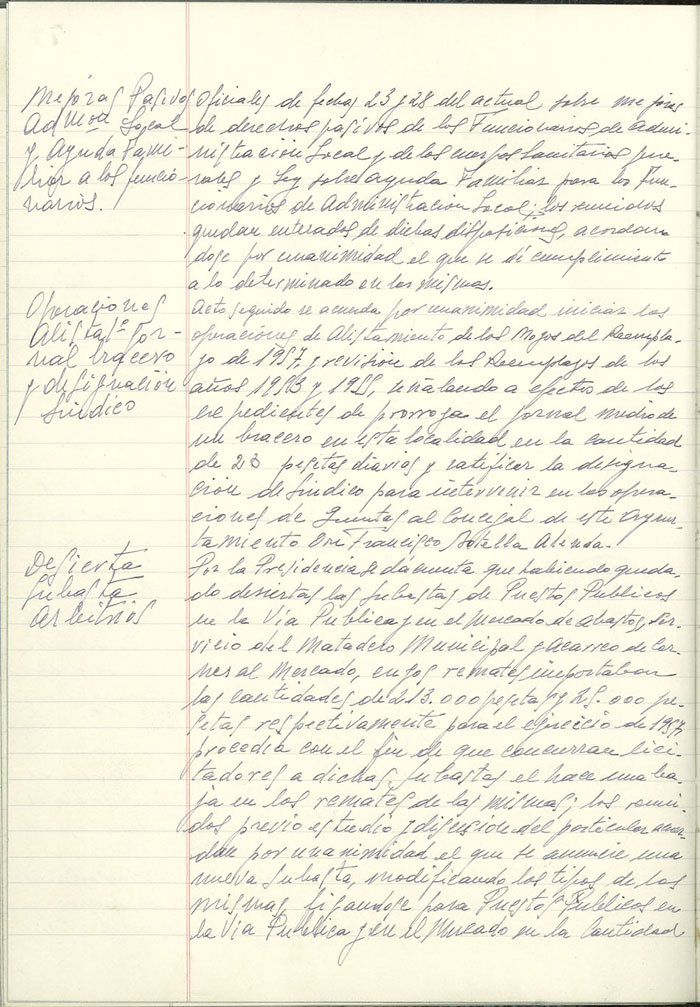 Mejoras Pasivos
Admon Local
y Ayuda Fami-
liar a los funcio-
narios.
Oficiales de fechas 23 y 28 del actual sobre mejoras
de derechos pasivos de los Funcionarios de Admi-
nistración Local y de los cuerpos Sanitarios gene-
rales y Ley sobre Ayuda Familiar para los Fun-
cionarios de Administracion Local; los reunidos
quedan enterados de dichas disposiciones, acordan-
dose por unanimidad el que se dé cumplimiento
a lo determinado en las mismas.
Operaciones
Alistas. Jor-
nal bracero
y designación
Sindico
Acto seguido se acuerda por unanimidad iniciar las
operaciones de Alistamiento de los Mozos del Reempla-
zo de 1957, y revisión de los Reemplazos de los
años 1953 y 1955, señalando a efectos de los
expedientes de prorroga el jornal medio de
un bracero en esta localidad en la cantidad
de 23 pesetas diarias y ratificar la designa-
ción de Sindico para intervenir en las opera-
ciones de Quintas al Concejal de este Ayun-
tamiento Don Francisco Botella
Desierta
Subasta
Arbitrios
Por la Presidencia se da cuenta que habiendo queda-
do desiertas las Subastas de Puestos Publicos
en la Via Publica y en el Mercado de abastos, Ser-
vicio del Matadero Municipal y Acarreo de Car-
nes al Mercado, cuyos remates importaban
las cantidades de 213.000 pesetas y 25.000 pe-
setas respectivamente para el ejercicio de 1957,
procedia con el fin de que concurran lici-
tadores a dichas Subastas el hacer una ba-
ja en los remates de las mismas; los reuni-
dos previo estudio y discusión del particular acuer-
dan por unanimidad el que se anuncie una
nueva Subasta, modificando los tipos de las
mismas, fijandose para Puestos Publicos en
la Via Publica y en el Mercado en la Cantidad